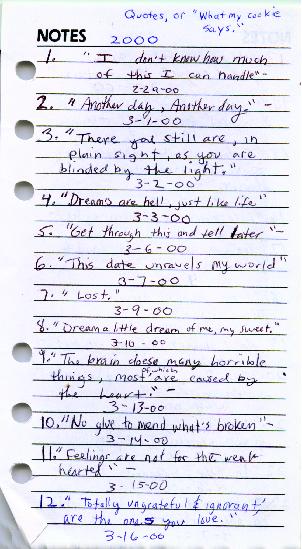 Quotes, or "What my cookie
says."
NOTES 2000
1. "I don't know how much
of this I can handle" -
2-29-00
2. "Another day, Another day." -
3-1-00
3. "There you still are, in
plain sight, as you are
blinded by the light."
3-2-00
4. "Dreams are hell, just like life"
3-3-00
5. "Get through this and tell later" -
3-6-00
6. "This date unravels my world"
3-7-00
7. "Lost."
3-9-00
8. "Dream a little dream of me, my sweet."
3-10-00
9. "The brain does many horrible
things, most of which are caused by
the heart." -
3-13-00
10. "No glue to mend what's broken" -
3-14-00
11. "Feelings are not for the weak
hearted" -
3-15-00
12. "Totally ungrateful & ignorant,
are the ones you love."
3-16-00